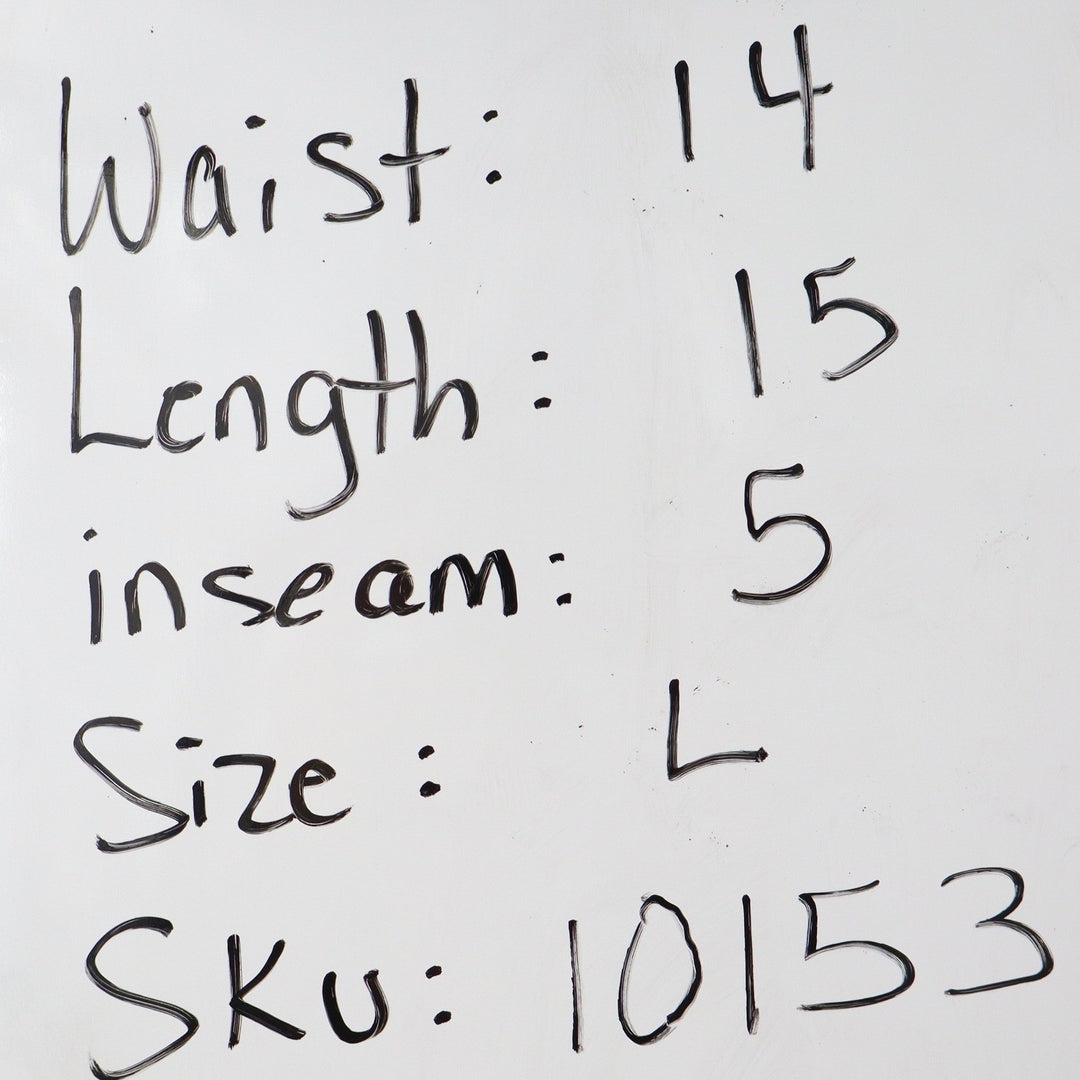 Waist: 14
Length: 15
inseam: 5
Size: L
SKU: 10153